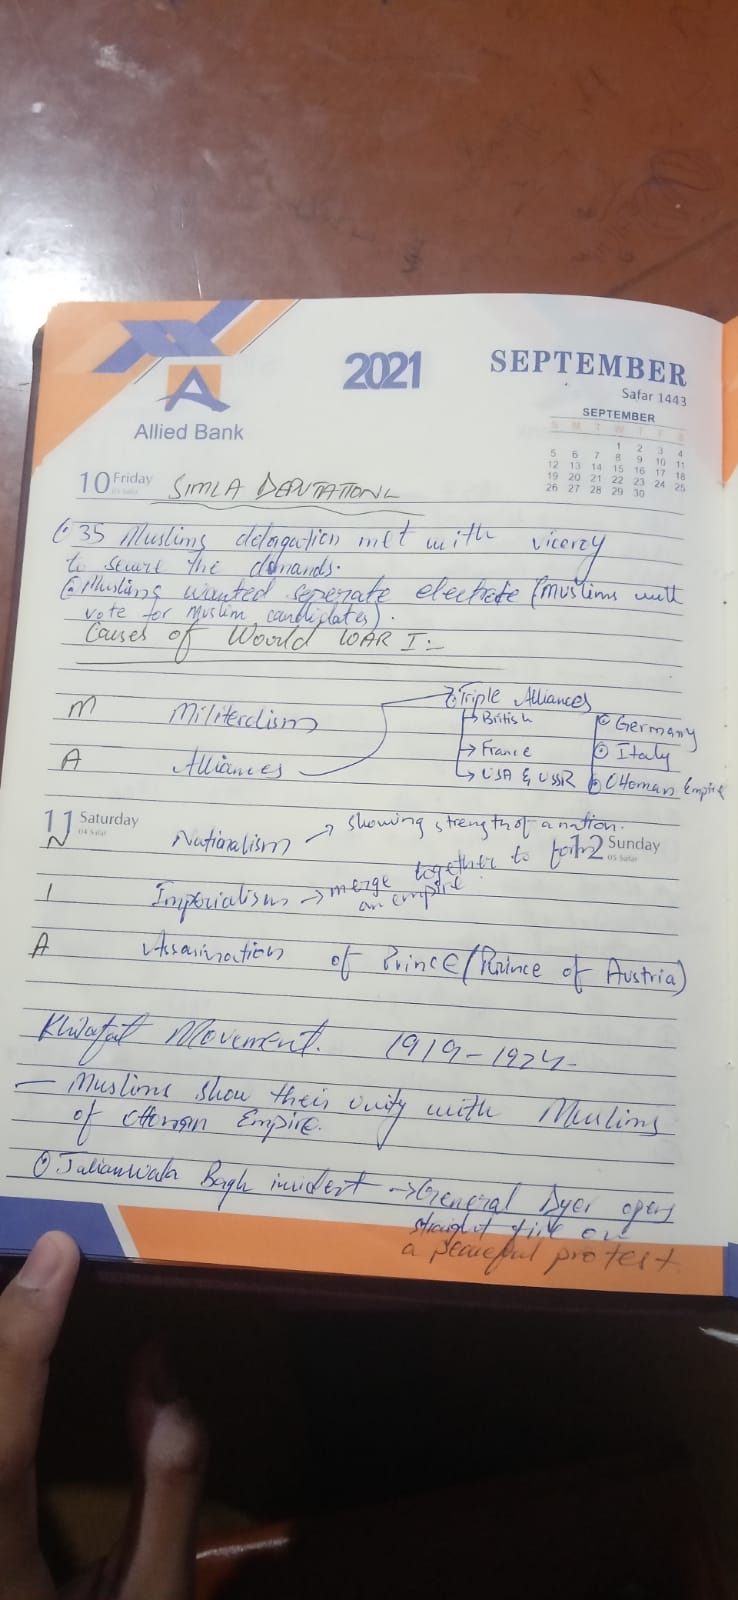 2021
SEPTEMBER
Safar 1443
Allied Bank
SEPTEMBER
S M T W T F S
1 2 3 4
5 6 7 8 9 10 11
12 13 14 15 16 17 18
19 20 21 22 23 24 25
26 27 28 29 30
10 Friday
SIMLA DEPUTATION
35 Muslims delagation met with vicercy
to secure the demands.
Muslims wanted seperate electrate (muslims will
vote for Muslim candidates).
Causes of Woorld WAR I:-
M Militeralism
Triple Alliances
British Germany
A Alliances
France Italy
USA & USSR Ottoman Empire
11 Saturday
N Nationalism → showing strength of a nation.
12 Sunday
I Imperialism → merge together to form
an empire
A Assasination of Prince (Prince of Austria)
Khilafat Movement. 1919-1924-
— Muslims show their unity with Muslims
of Ottoman Empire.
Jalianwala Bagh incident → General Dyer opens
straight fire on
a peaceful protest